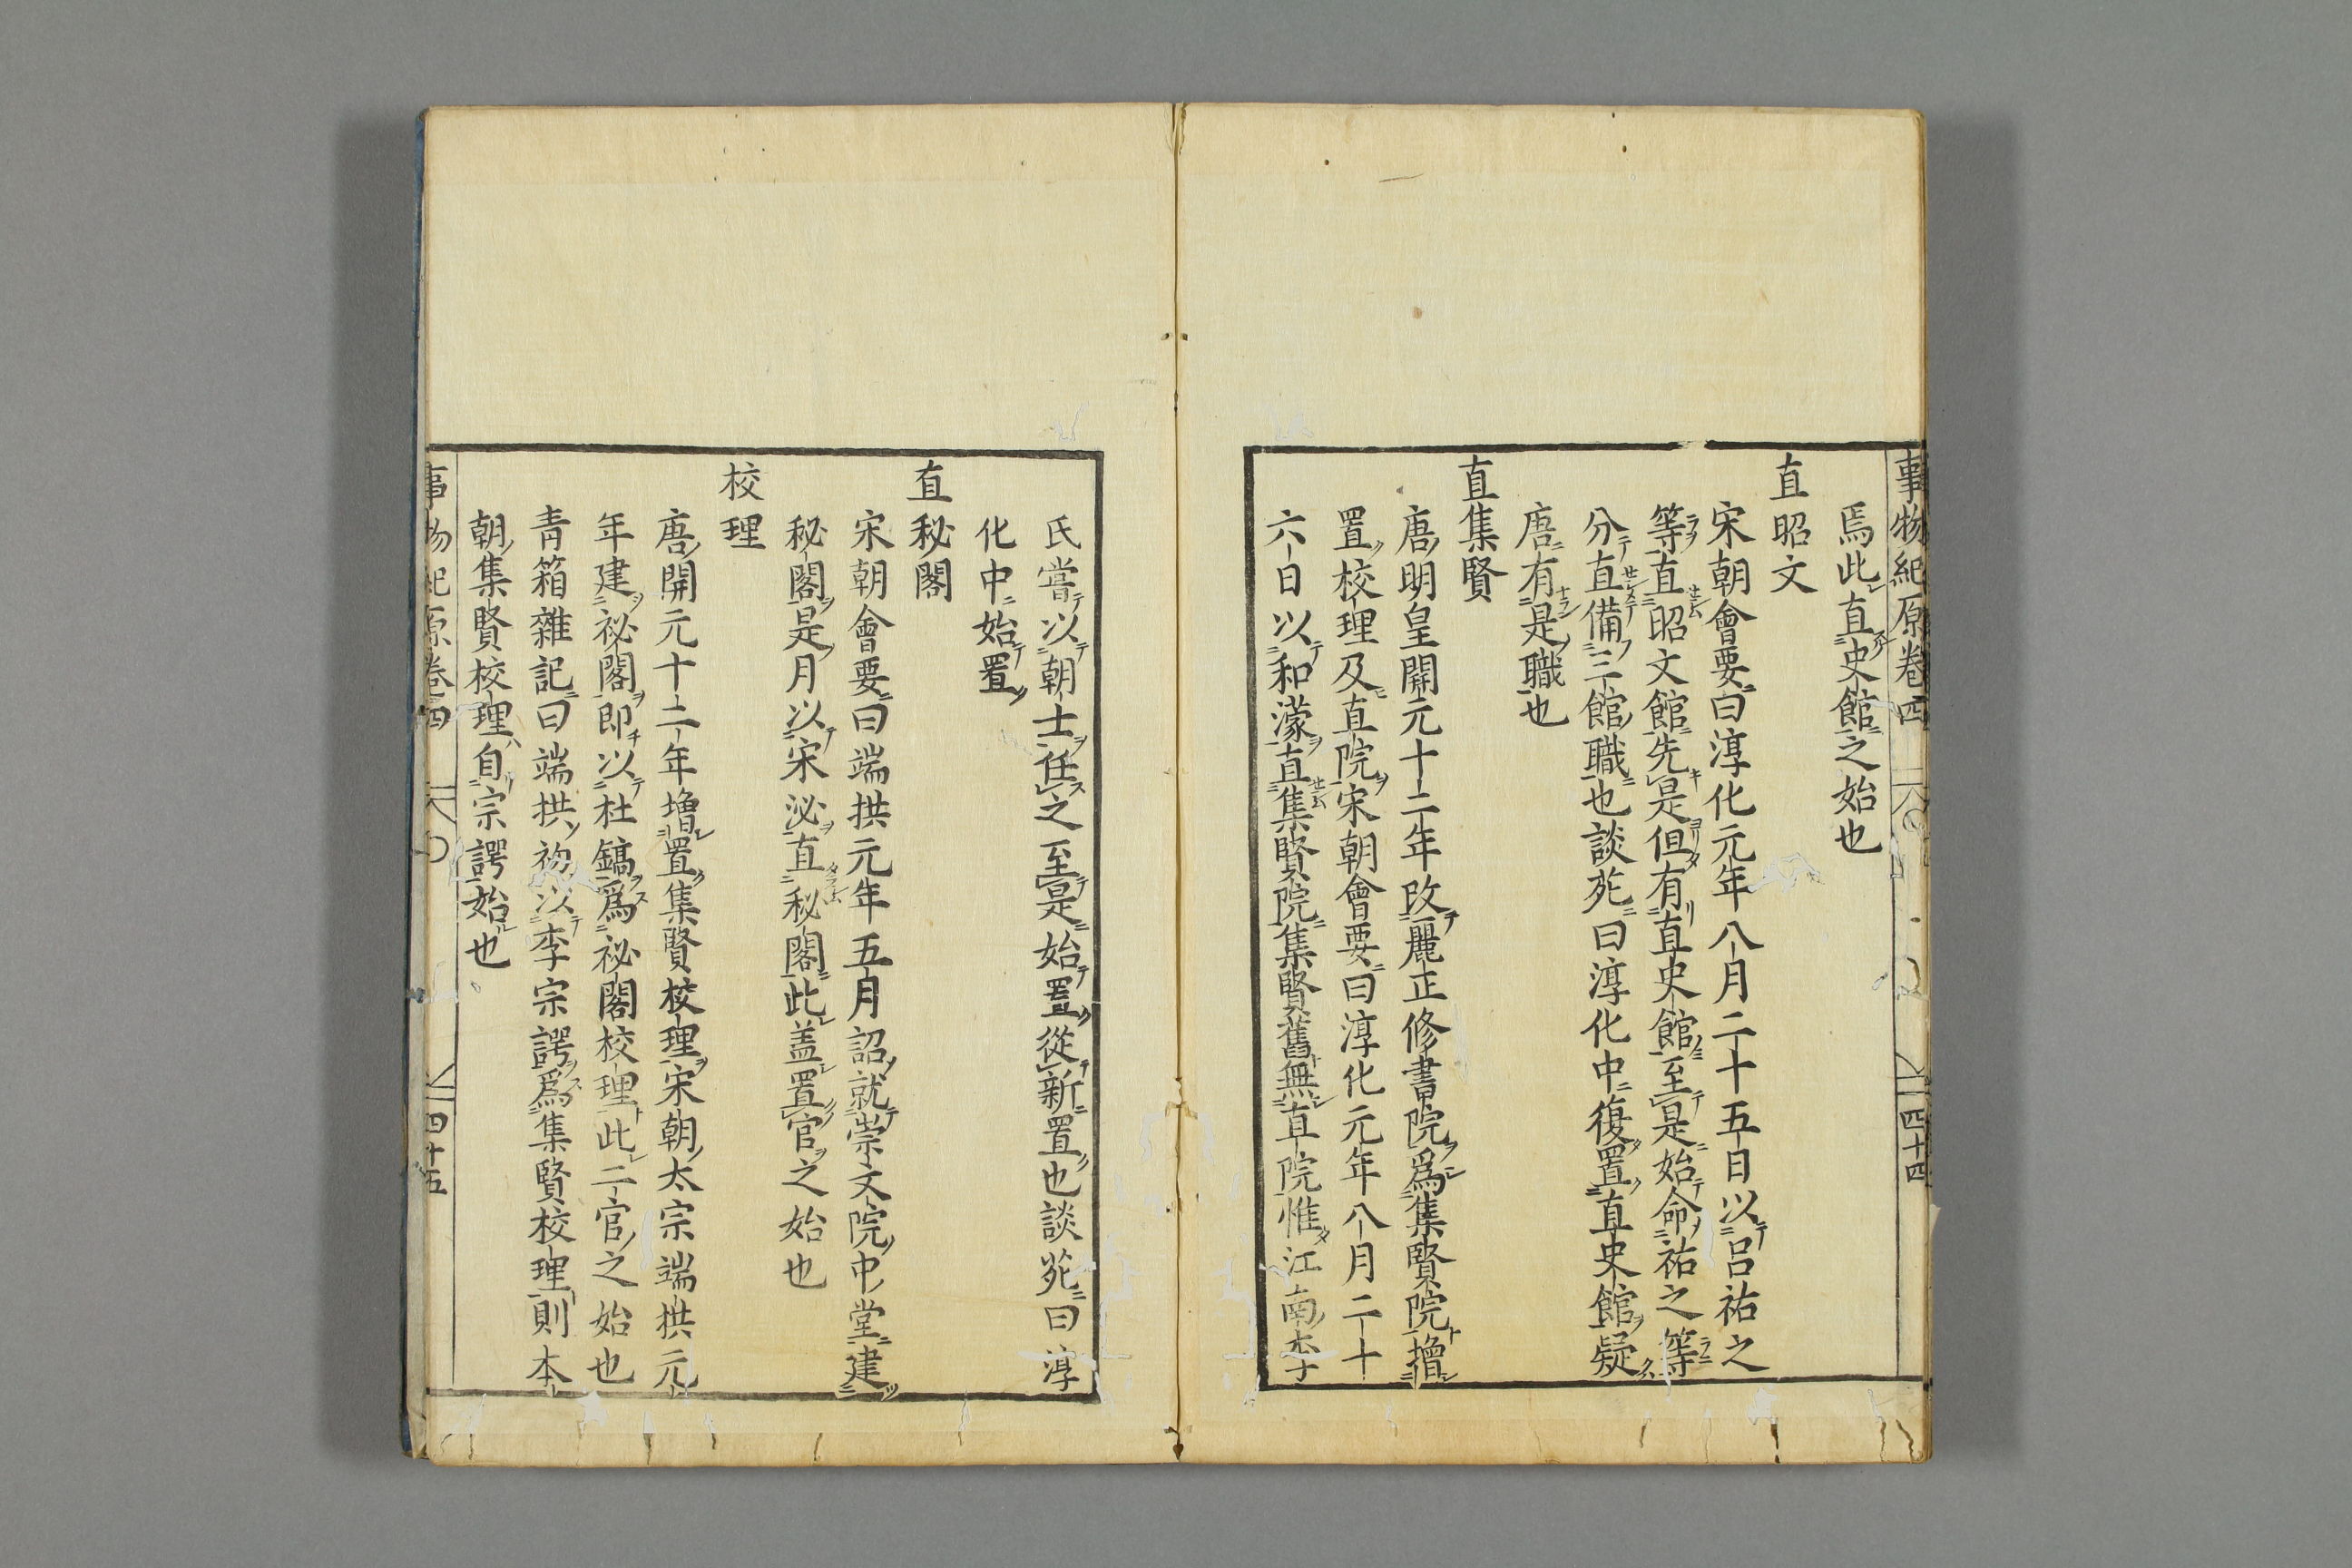 事物紀原卷四 四十四
焉此直史館之始也
直昭文
宋朝會要曰淳化元年八月二十五日以呂祐之
等直昭文館先是但有直史館至是始命祐之等
分直備三館職也談苑曰淳化中復置直史館疑
唐有是職也
直集賢
唐明皇開元十二年改麗正修書院爲集賢院增
置校理及直院宋朝會要曰淳化元年八月二十
六日以和濛直集賢院集賢舊無直院惟江南李
氏嘗以朝士任之至是始置從新置也談苑曰淳
化中始置
直秘閣
宋朝會要曰端拱元年五月詔就崇文院中堂建
秘閣是月以宋泌直秘閣此盖置官之始也
校理
唐開元十二年增置集賢校理宋朝太宗端拱元
年建祕閣即以杜鎬爲祕閣校理此二官之始也
靑箱雜記曰端拱初以李宗諤爲集賢校理則本
朝集賢校理自宗諤始也
事物紀原卷四 四十五